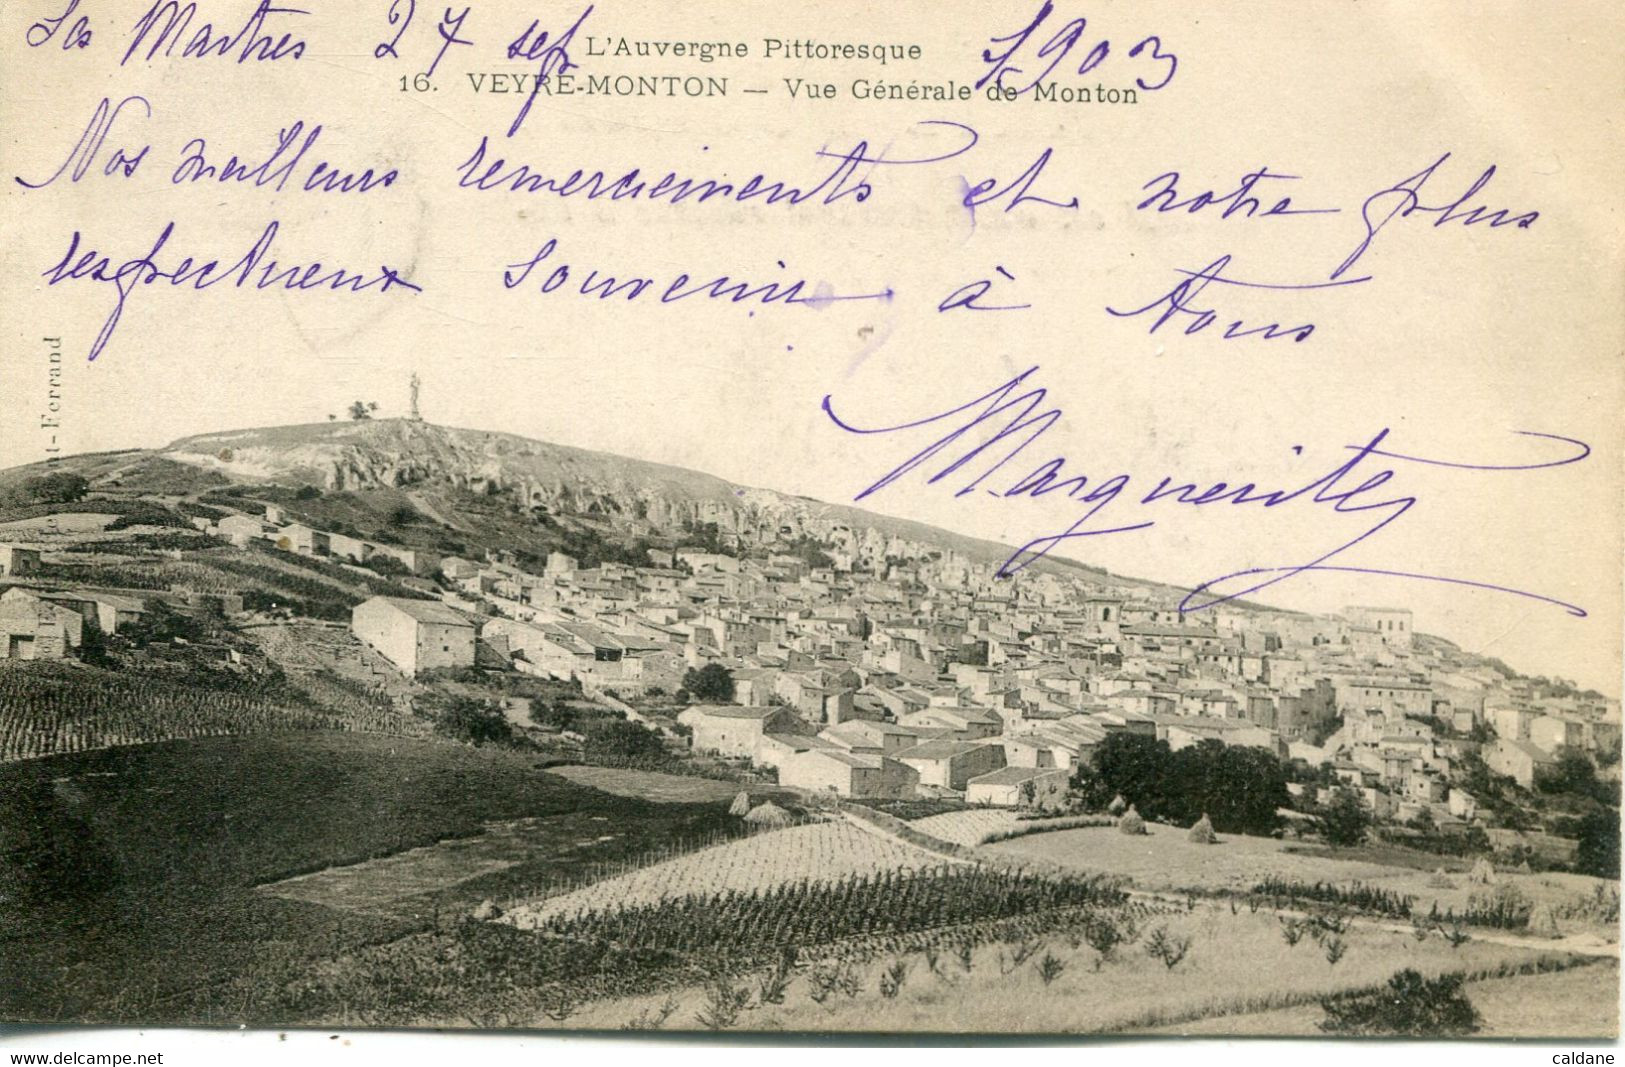 Les Martres 27 sept 1903
L'Auvergne Pittoresque
16. VEYRE-MONTON — Vue Générale de Monton
Nos meilleurs remerciements et notre plus
respectueux souvenir à tous
Marguerite
nt-Ferrand
delcampe.net
caldane